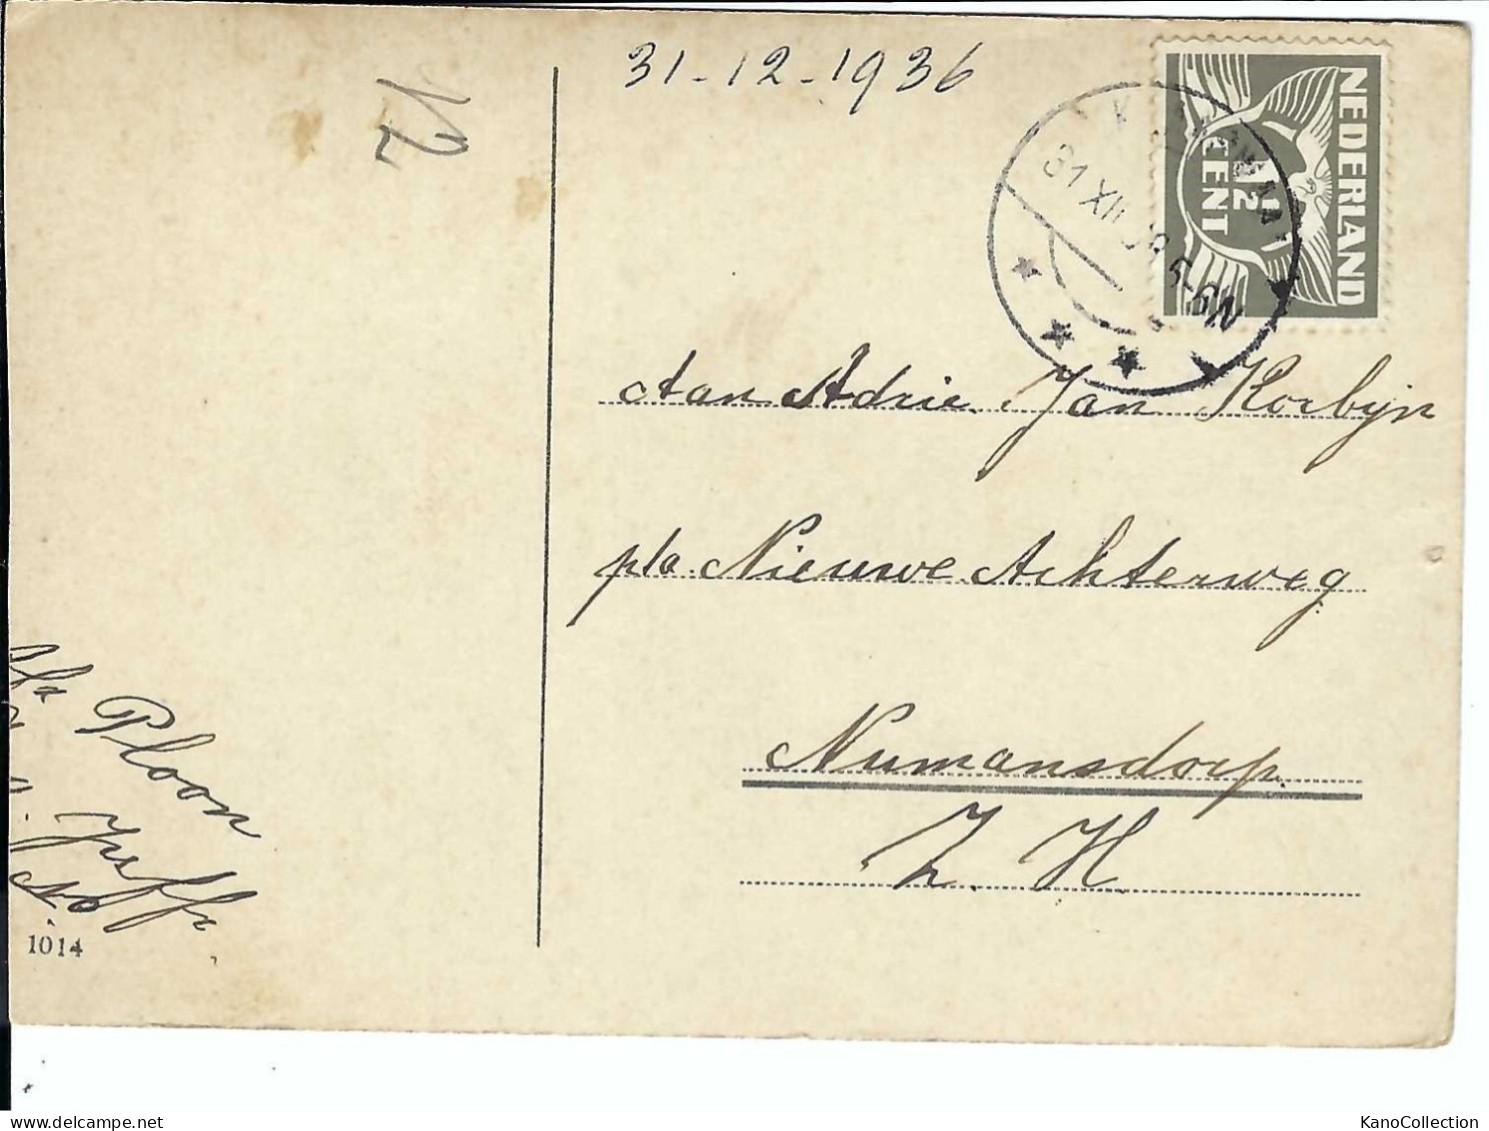 31-12-1936
12
NEDERLAND
1½
CENT
31 XII 36 5-6N
Aan Adrie Jan Korbijn
p/a Nieuwe Achterweg
Numansdorp
Z. H.
Ploon
Juffr
1014
delcampe.net
KanoCollection